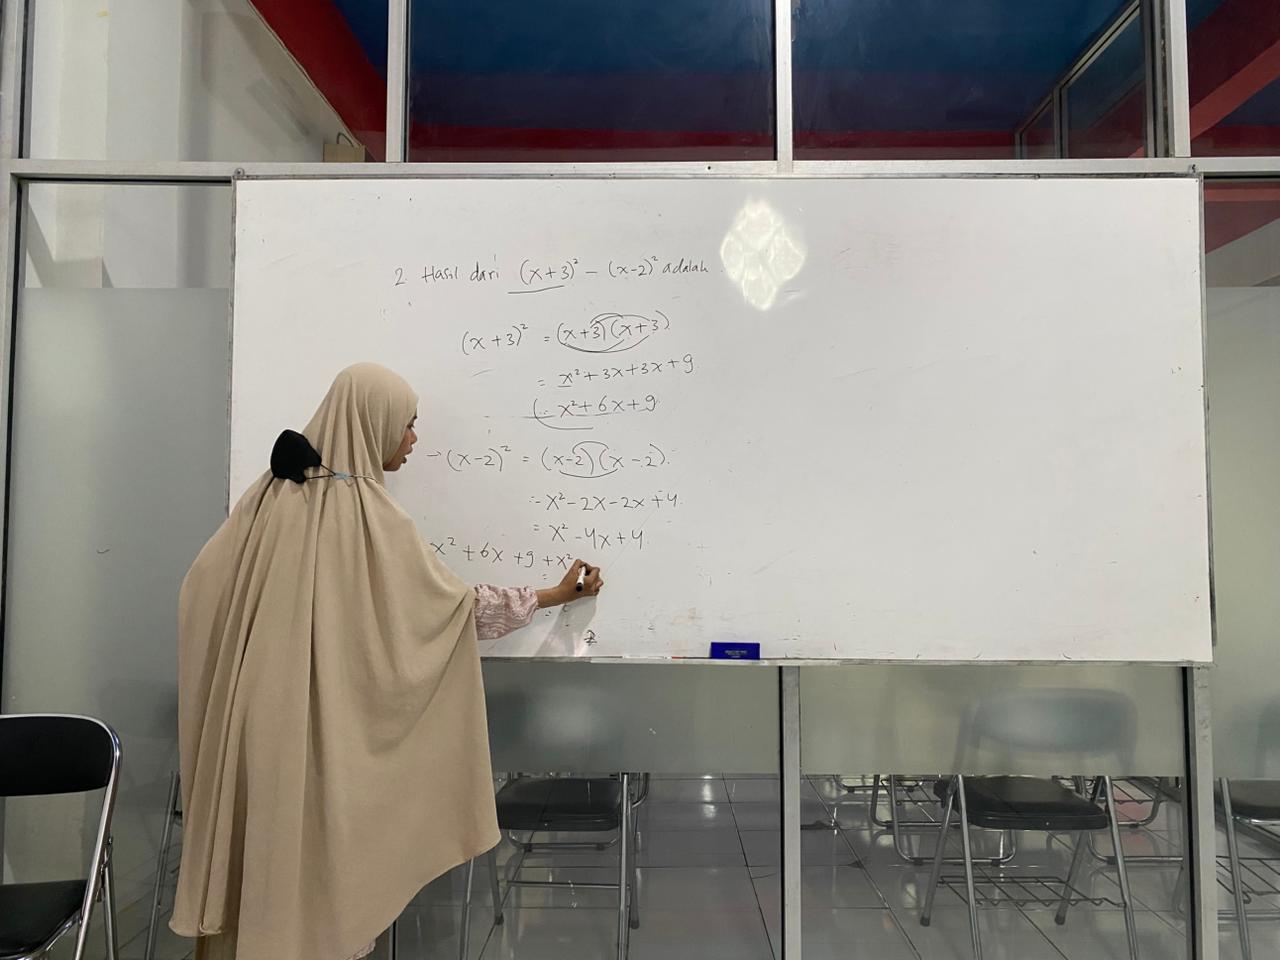 2. Hasil dari (x+3)² - (x-2)² adalah
(x+3)² = (x+3)(x+3)
= x² + 3x + 3x + 9
= x² + 6x + 9
→ (x-2)² = (x-2)(x-2)
= x² - 2x - 2x + 4
= x² - 4x + 4
x² + 6x + 9 + x²